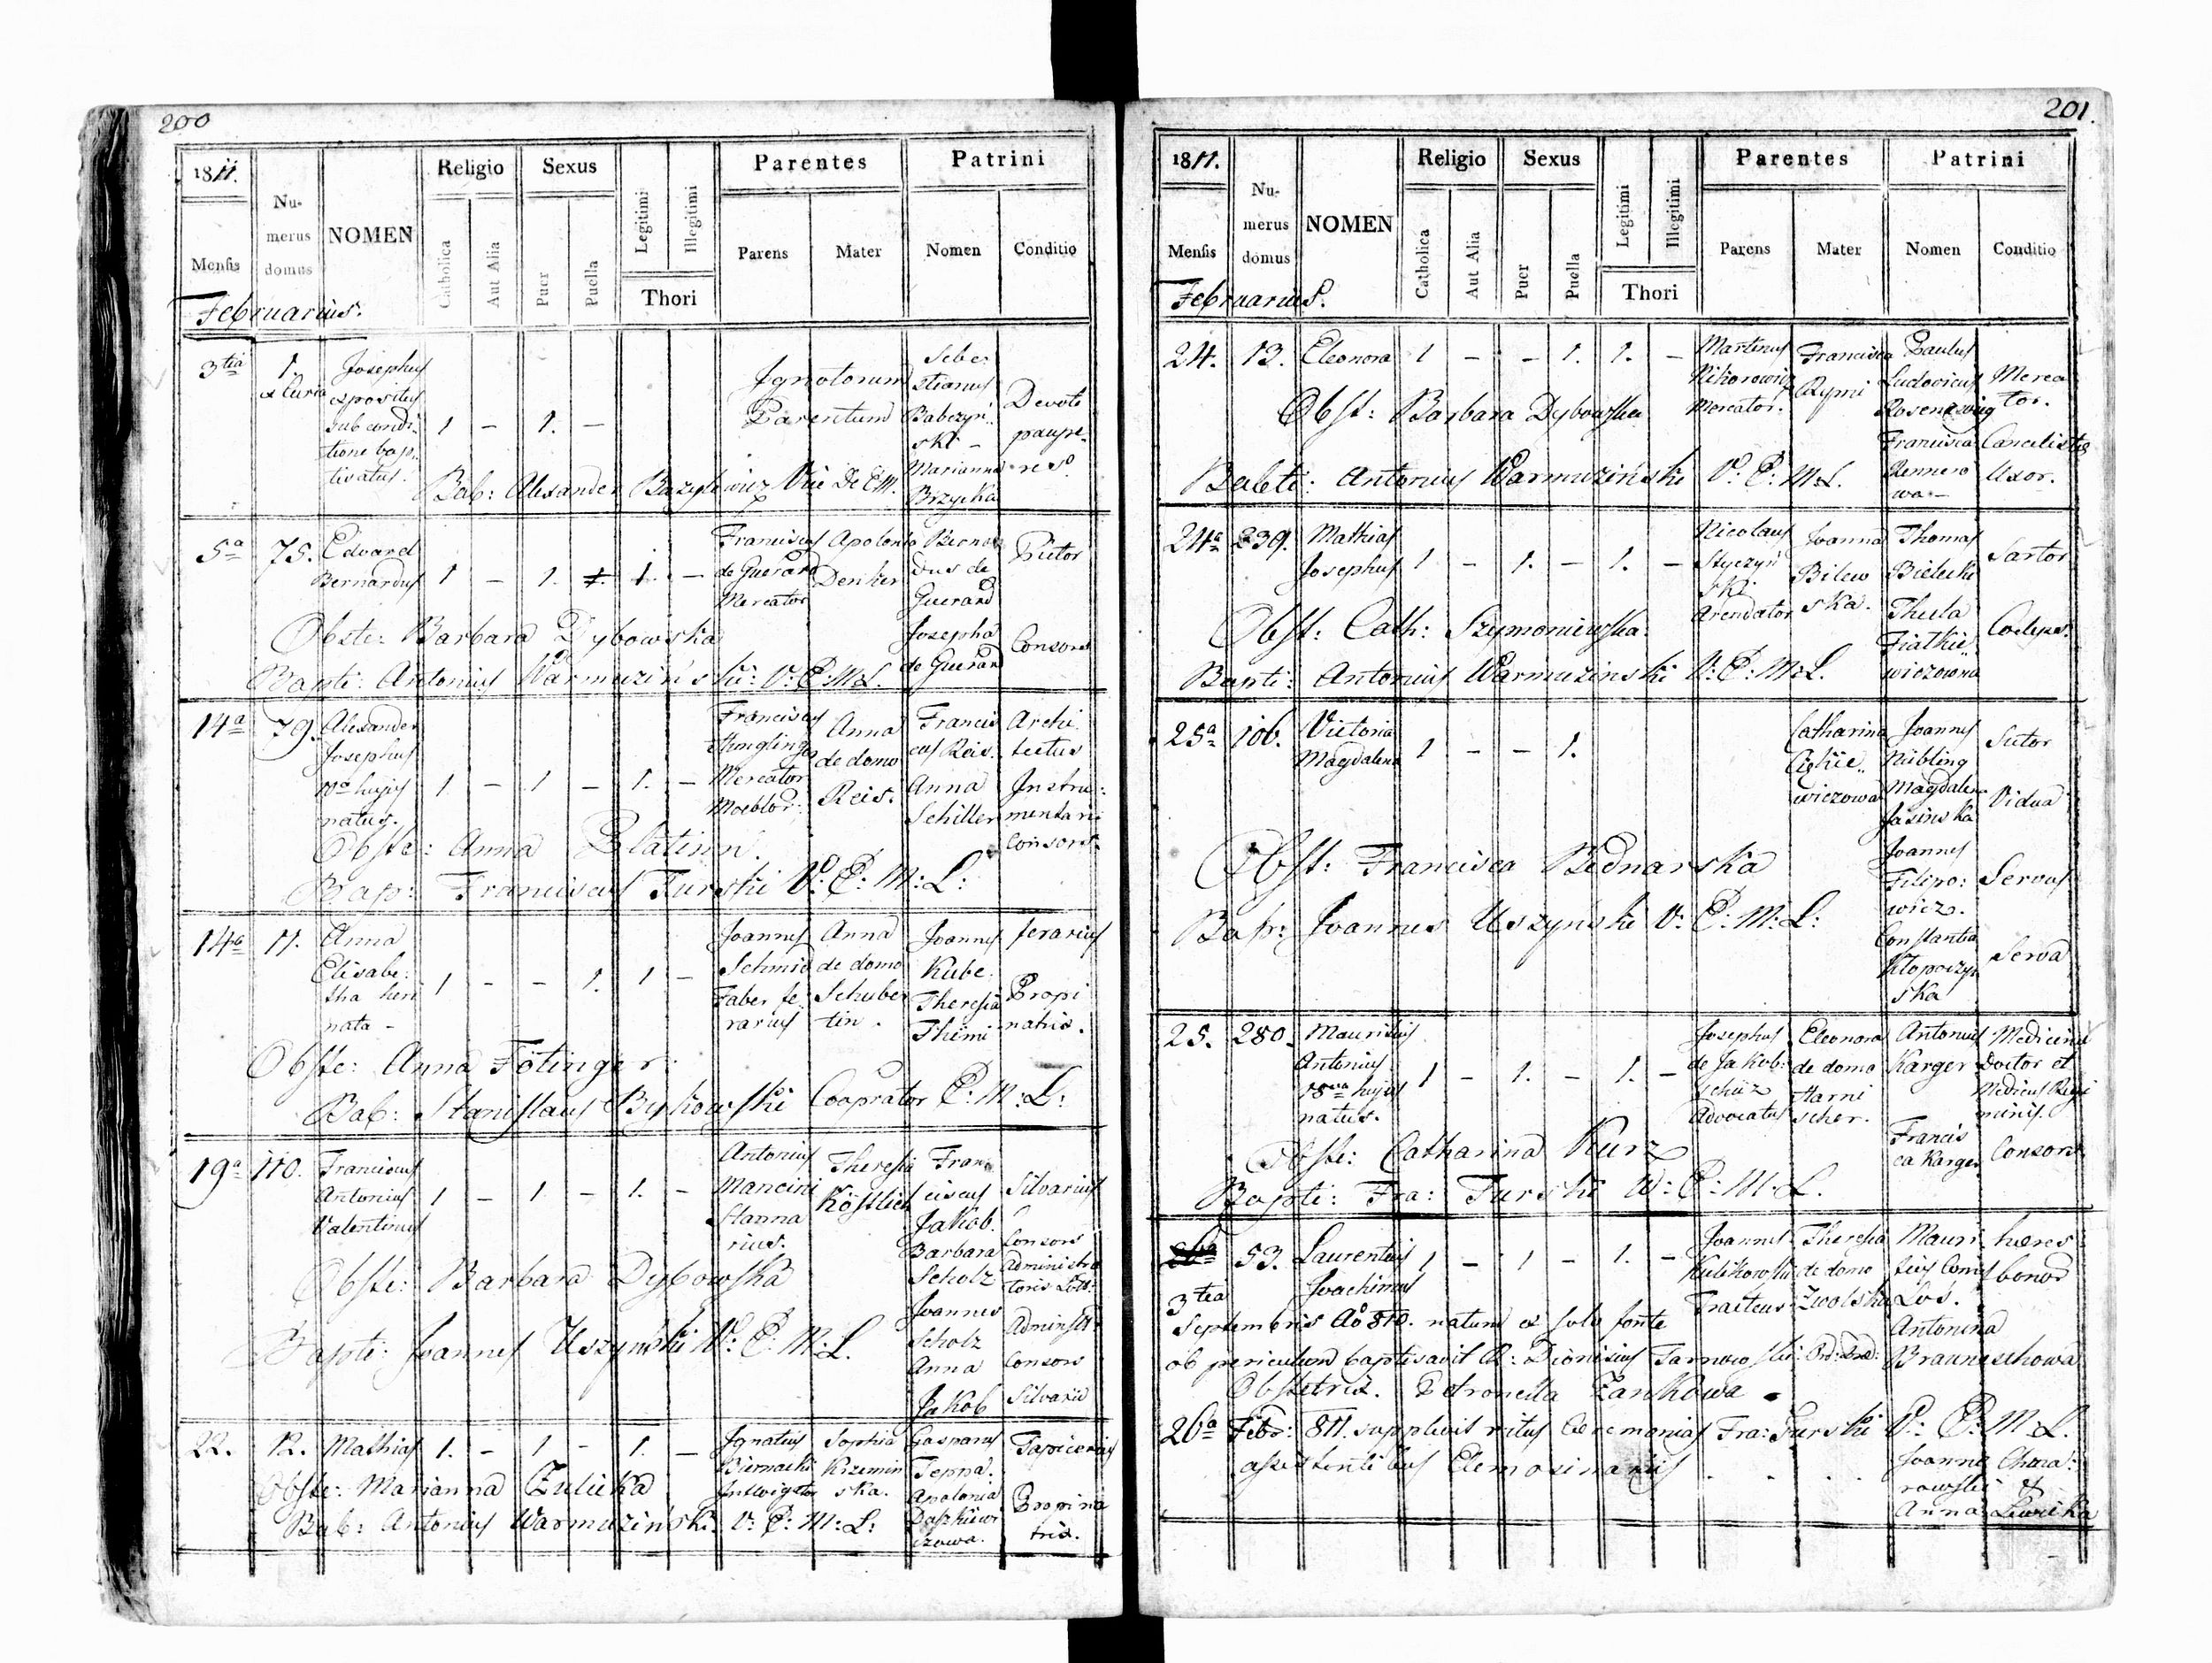 200
1811.
Mensis
Numerus domus
NOMEN
Religio
Catholica
Aut Alia
Sexus
Puer
Puella
Legitimi
Illegitimi
Thori
Parentes
Parens
Mater
Patrini
Nomen
Conditio
Februarius.
3tia 1. ex Curia
Josephus
expositus
sub condi-
tione bap-
tisatus.
1 - 1. -
Ignotorum
Parentum
Seba-
stianus
Babczyń-
ski -
Marianna
Brzycka
Devote
paupe-
res
Bab: Alexander Bazylewicz
5a 75. Edvard
Bernardus
1 - 1. 1. -
Franciscus
de Guerard
Mercator
Apolonia
Denker
Bernar
dus de
Guerard
Pictor
Josepha
de Guerard
Consors
Obste: Barbara Dybowska
Bapti: Antonius Warmuziński: V: E: M: L.
14a 79. Alexander
Josephus
10a hujus
natus.
1 - 1 - 1. -
Franciscus
Mercator
Moeblor:
Anna
de domo
Reis.
Francis
cus Reis.
Anna
Schiller
Archi
tectus
Instru-
mentarii
Consors.
Obste: Anna Platinn.
Bap: Franciscus Turski V: E: M: L:
14a 11. Anna
Elisabe-
tha heri
nata -
1 - - 1. 1 -
Joannes
Schmid
Faber fe
rarius
Anna
de domo
Schuber
tin.
Joannes
Kube.
Theresia
Thimi
ferarius
Propi
natrix.
Obste: Anna Fötinger.
Bab: Stanislaus Bykowski Cooprator E: M: L:
19a 110. Franciscus
Antonius
Valentinus
1 - 1 - 1. -
Antonius
Mancini
Stanna
rius.
Theresia
Köstlich
Fran-
ciscus
Jakob.
Barbara
Scholz
Joannes
Scholz
Anna
Jakob
Silvarius
Consors
Administra
toris Lott:
Consors
Silvarii
Obste: Barbara Dybowska
Bapti: Joannes Uszyński V: E: M: L.
22. 12. Mathias 1. - 1 - 1. -
Ignatius
Biernacki
Sophia
Krzemin
ska.
Gasparus
Tepna.
Apolonia
Daszkiewi
czowa.
Tapicerius
Propina
trix.
Obste: Marianna Zulicka
Bab: Antonius Warmuziński. V: E: M: L:
201.
1811.
Mensis
Numerus domus
NOMEN
Religio
Catholica
Aut Alia
Sexus
Puer
Puella
Legitimi
Illegitimi
Thori
Parentes
Parens
Mater
Patrini
Nomen
Conditio
Februarius.
24. 13. Eleonora 1 - - 1. 1. -
Martinus
Nikorowicz
Mercator.
Francisca
Rymi
Paulus
Ludovicus
Rosenzweig
Merca
tor.
Francisca
Rennero
wa -
Cancelistae
Uxor.
Obst: Barbara Dybowska
Babti: Antonius Warmuziński V: E: M: L.
24a 239. Mathias
Josephus
1 - 1. - 1. -
Nicolaus
Styczyń
ski.
Arendator
Joanna
Bilew
ska.
Thomas
Bielecki
Thecla
Fiatkie-
wiczowna
Sartor
Obst: Cath: Szymoniewska.
Bapti: Antonius Warmuzinski V: E: M: L.
25a 106. Victoria
Magdalena
1 - - 1.
Catharina
wiczowa
Joannes
Nübling
Magdalen
Jasinska
Joannes
Filipo:
wicz.
Constantia
Kłopoczyn
ska
Sutor
Vidua
Servus
Serva
Obst: Francisca Bednarska
Bap: Joannes Uszynski V: E: M: L:
25. 280. Mauritius
Antonius
18va hujus
natus.
1 - 1. - 1. -
Josephus
de Jakob:
schüz
Advocatus
Eleonora
de domo
Harni
scher.
Antonius
Karger
Francis
ca Karger
Medicinae
Doctor et
Medicus Regi
minis.
Consors
Obste: Catharina Kurz
Bapti: Fra: Turski V: E: M: L.
53. Laurentius
Joachimus
1 - 1 - 1. -
Joannes
Kulikowski
Traiteus
Theresia
de domo
Zwolska
Mauri
tius Comes
Łoś.
Antonina
Brauneschowa
haeres
bonor
3tia
Septembris Ao 810. natum ex solo fonte
ob periculum baptisavit R: Dionisius Tarnowski
Obstetrix. Petronella Zankowa
26a Febr: 811. supplevit ritus Ceremonias Fra: Turski V: E: M: L.
assistentibus Elemosinariis . . . .
Joanne Chara:
rowski &
Anna Lewicka